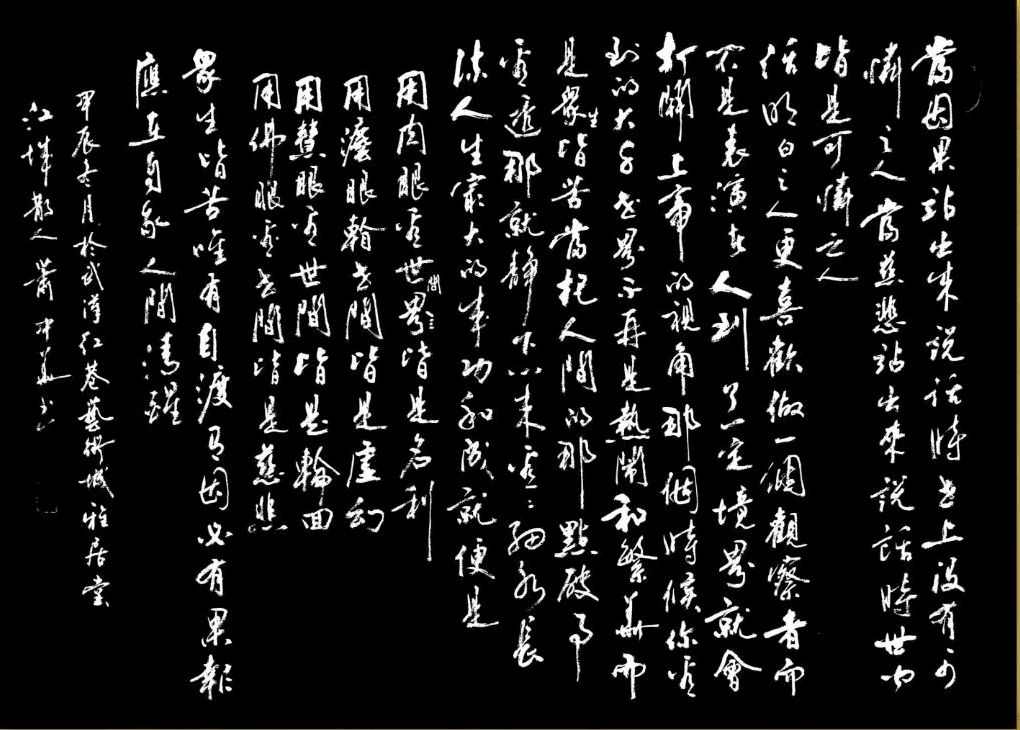 當因果站出来說話時世上没有可
憐之人當慈悲站出來說話時世間
皆是可憐之人
活明白之人更喜歡做一個觀察者而
不是表演者人到了一定境界就會
打開上帝的視角那個時候你看
到的大千世界不再是熱鬧和繁華而
是衆生皆苦當把人間的那點破事
看透那就靜下心来看看細水長
流人生最大的成功和成就便是
用肉眼看世間皆是名利
用灋眼看世間皆是虛幻
用慧眼看世間皆是輪回
用佛眼看世間皆是慈悲
眾生皆苦唯有自渡有因必有果報
應在自家人間清醒
甲辰冬月於武漢红巷藝術城雅居堂
江城散人蕭中華书